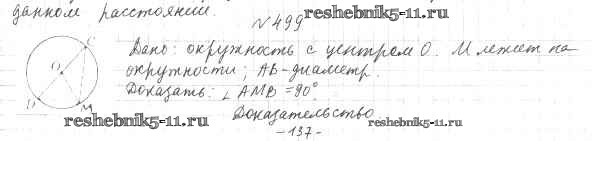 данном расстоянии.
№499
reshebnik5-11.ru
Дано: окружность с центром О. М лежит на
окружности; АВ-диаметр.
Доказать: ∠ АМВ = 90°
C
O
D
M
reshebnik5-11.ru
Доказательство
reshebnik5-11.ru
-137-